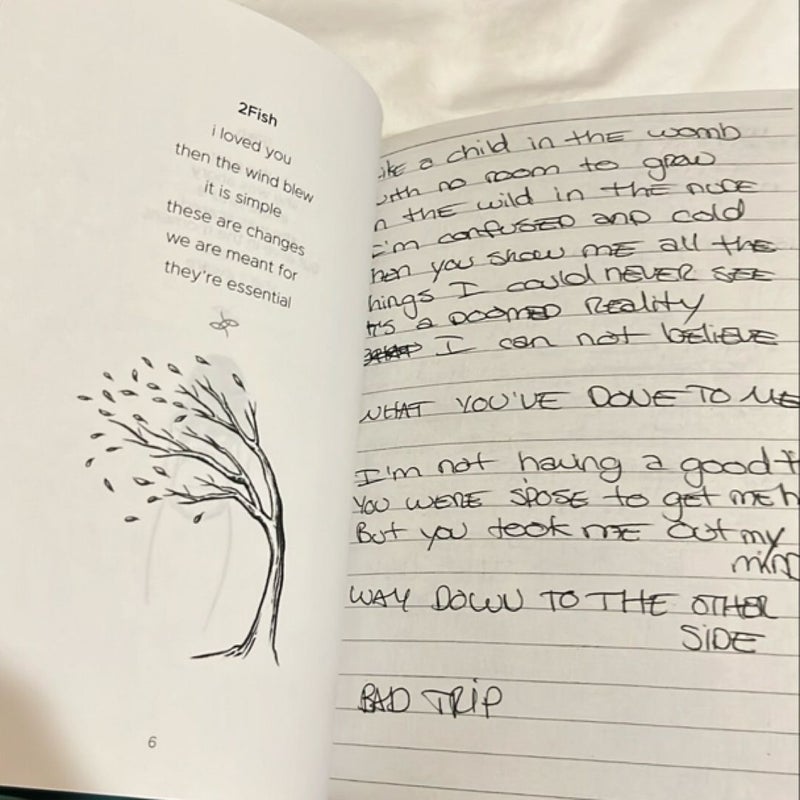 2Fish
i loved you
then the wind blew
it is simple
these are changes
we are meant for
they're essential
6
ike a child in the womb
ith no room to grow
n the wild in the nude
I'm confused and cold
hen you show me all the
hings I could never see
It's a Doomed Reality
I can not believe
WHAT YOU'VE DONE TO ME
I'm not having a good t
You were spose to get me h
But you took me out my
mind
WAY DOWN TO THE OTHER
SIDE
BAD TRIP